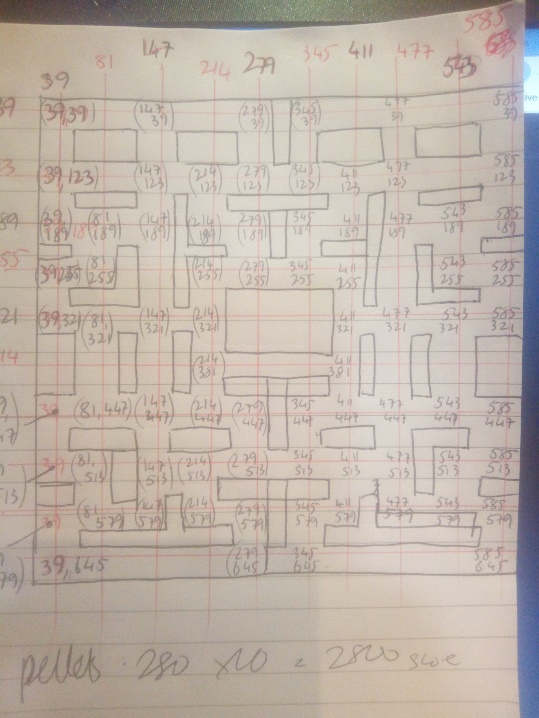 585
39 81 147 214 279 345 411 477 543
(39,39) (147 39) (279 39) (345 39) 477 39 585 39
(39,123) (147 123) (214 123) (279 123) (345 123) 411 123 477 123 585 123
(39 189) (81 189) (147 189) (214 189) (279 189) 345 189 411 189 477 189 543 189 585 189
(39,255) (81 255) (147 255) (214 255) (279 255) 345 255 411 255 477 255 543 255 585 255
(39,321) (81, 321) (147 321) (214 321) 411 321 477 321 543 321 585 321
(214 381) 411 381
39 (81,447) (147 447) (214 447) (279 447) 345 447 411 447 477 447 543 447 585 447
39 (81, 513) (147 513) (214 513) (279 513) 345 513 411 513 477 513 543 513 585 513
39 (81 579) (147 579) (214 579) (279 579) 345 579 411 579 477 579 543 579 585 579
39,645 (279 645) 345 645 585 645
pellets 280 x10 = 2800